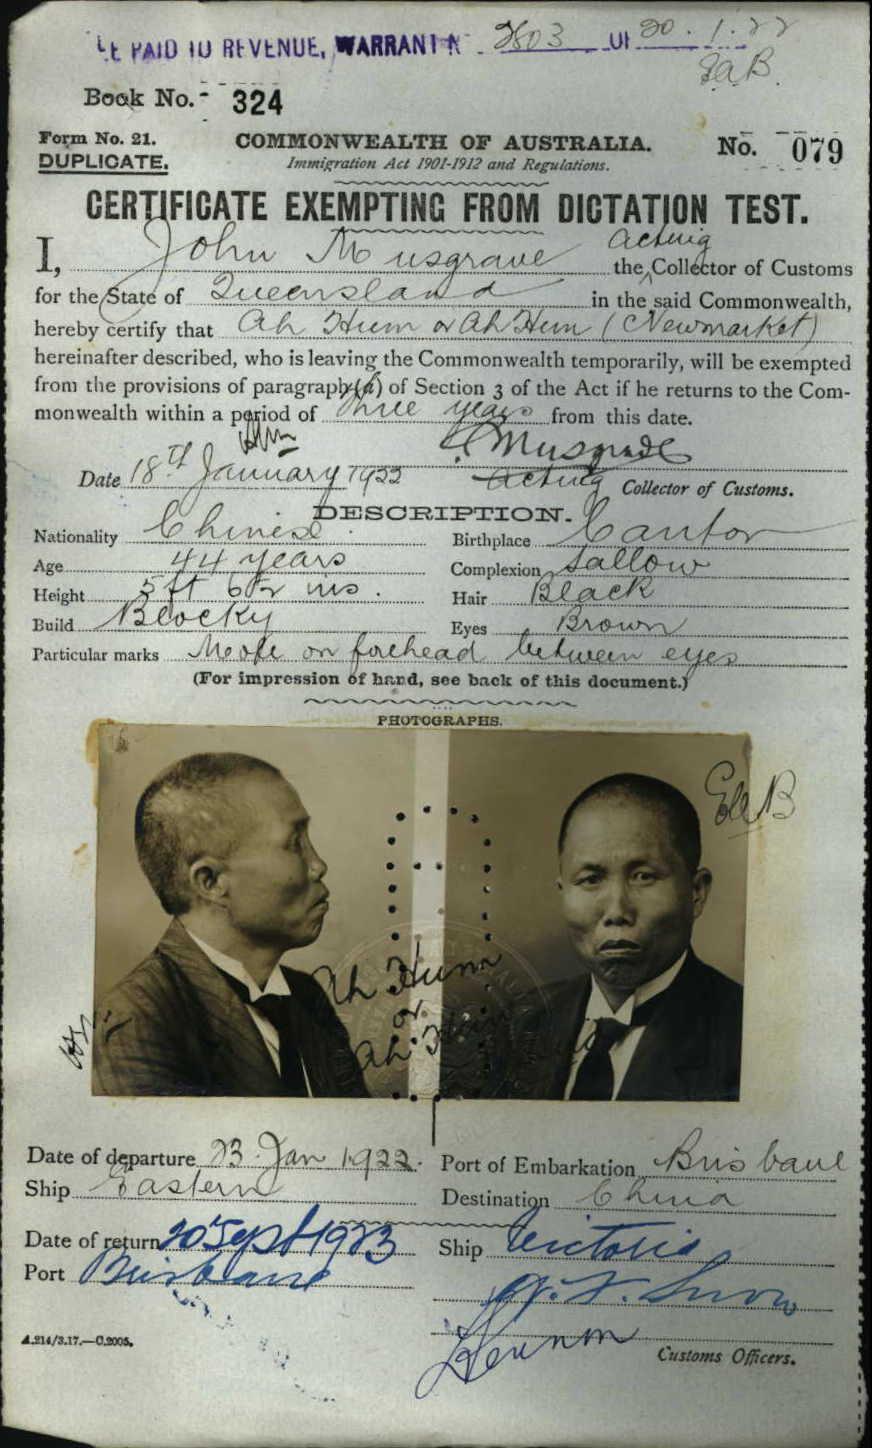 PAID TO REVENUE, WARRANT No 2803 OF 20.1.22
Book No. - 324
Form No. 21.
DUPLICATE.
COMMONWEALTH OF AUSTRALIA.
Immigration Act 1901-1912 and Regulations.
No. 079
CERTIFICATE EXEMPTING FROM DICTATION TEST.
I, John Musgrave the Acting Collector of Customs
for the State of Queensland in the said Commonwealth,
hereby certify that Ah Hum or Ah Hun (Newmarket)
hereinafter described, who is leaving the Commonwealth temporarily, will be exempted
from the provisions of paragraph (a) of Section 3 of the Act if he returns to the Com-
monwealth within a period of three years from this date.
Musgrave
Date 18th January 1922 Acting Collector of Customs.
DESCRIPTION.
Nationality Chinese. Birthplace Canton
Age 44 years Complexion Sallow
Height 5ft 6½ ins. Hair Black
Build Blocky Eyes Brown
Particular marks Mole on forehead between eyes
(For impression of hand, see back of this document.)
PHOTOGRAPHS.
Ah Hum
or
Ah Hun
Date of departure 23 Jan 1922. Port of Embarkation Brisbane
Ship Eastern Destination China
Date of return 20 Sept 1923 Ship Victoria
Port Brisbane
A.214/3.17.—C.2005.
Customs Officers.